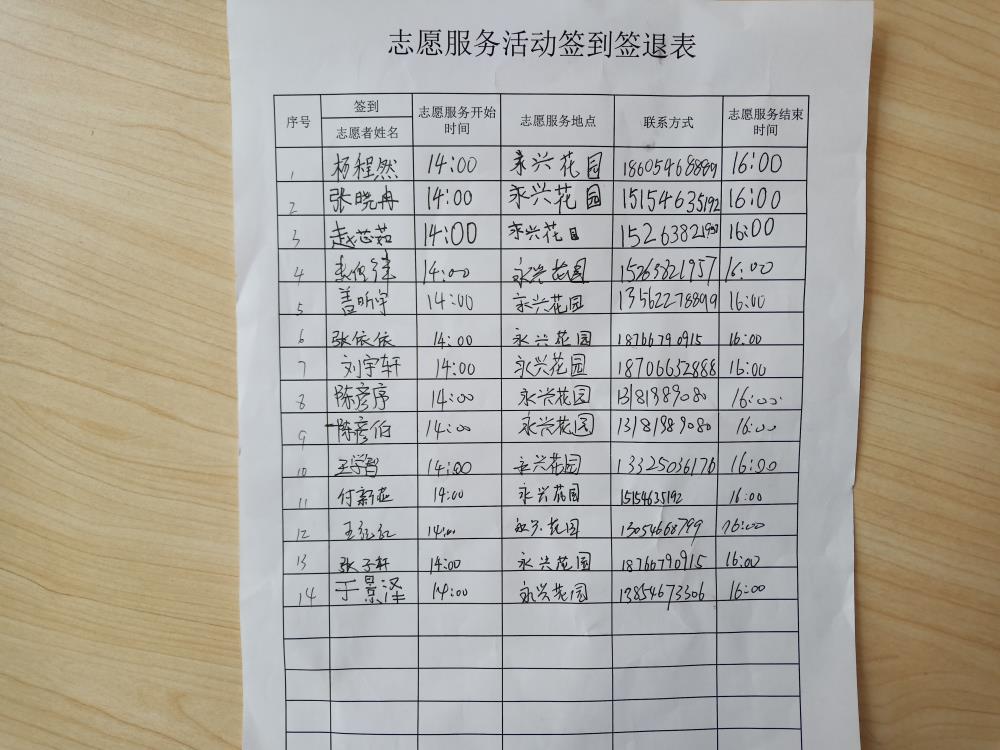 志愿服务活动签到签退表
序号 签到 志愿者姓名 志愿服务开始时间 志愿服务地点 联系方式 志愿服务结束时间
1 杨程然 14:00 永兴花园 18605468889 16:00
2 张晓冉 14:00 永兴花园 15154635192 16:00
3 赵芯茹 14:00 永兴花园 16:00
4 14:00 永兴花园 15263821957 16:00
5 盖昕宇 14:00 永兴花园 13562278899 16:00
6 张依依 14:00 永兴花园 18766790915 16:00
7 刘宇轩 14:00 永兴花园 18706652888 16:00
8 陈彦序 14:00 永兴花园 13181989080 16:00
9 陈彦伯 14:00 永兴花园 13181989080 16:00
10 王学智 14:00 永兴花园 13325036176 16:00
11 付新燕 14:00 永兴花园 15154635192 16:00
12 王红红 14:00 永兴花园 13054668799 16:00
13 张子轩 14:00 永兴花园 18766790915 16:00
14 于景泽 14:00 永兴花园 13854673306 16:00